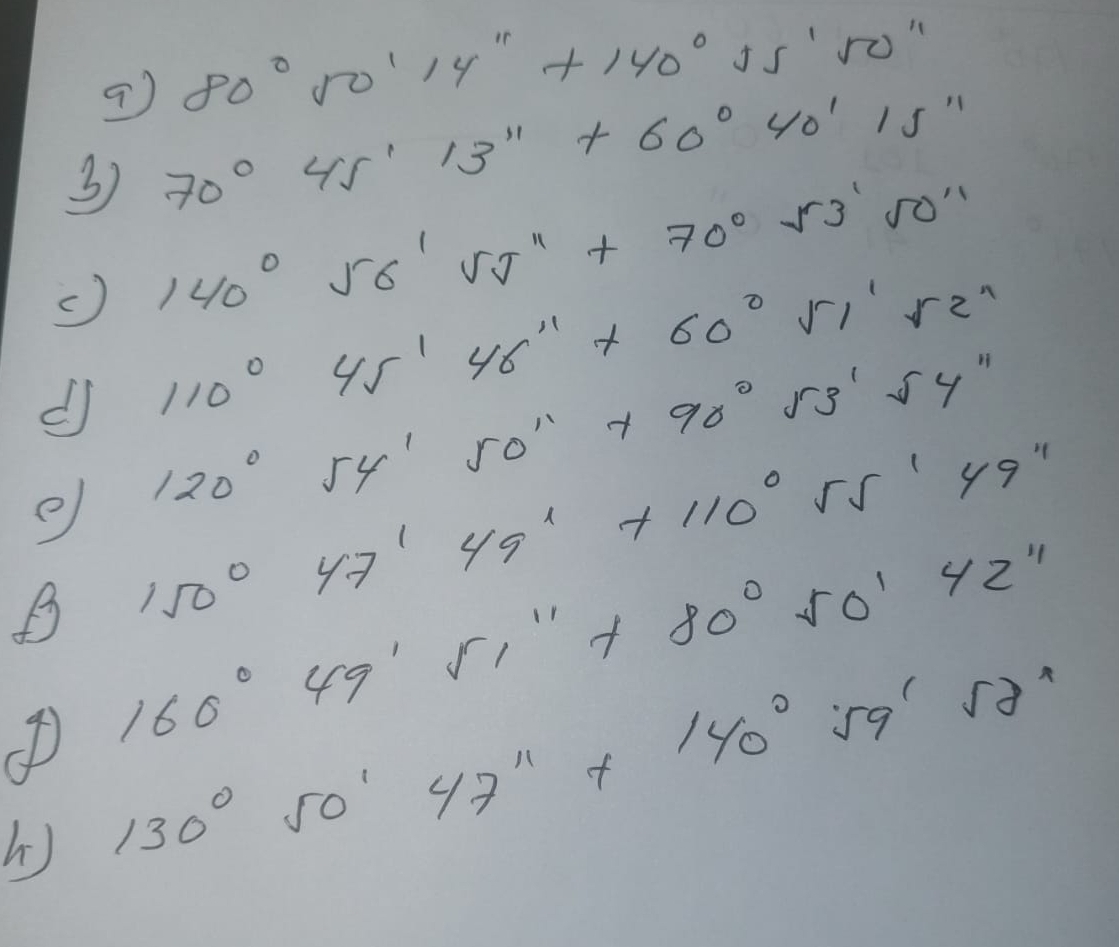 a) 80° 50' 14" + 140° 55' 50"
b) 70° 45' 13" + 60° 40' 15"
c) 140° 56' 55" + 70° 53' 50"
d) 110° 45' 46" + 60° 51' 52"
e) 120° 54' 50" + 90° 53' 54"
f) 150° 47' 49' + 110° 55' 49"
g) 160° 49' 51" + 80° 50' 42"
h) 130° 50' 47" + 140° 59' 58"